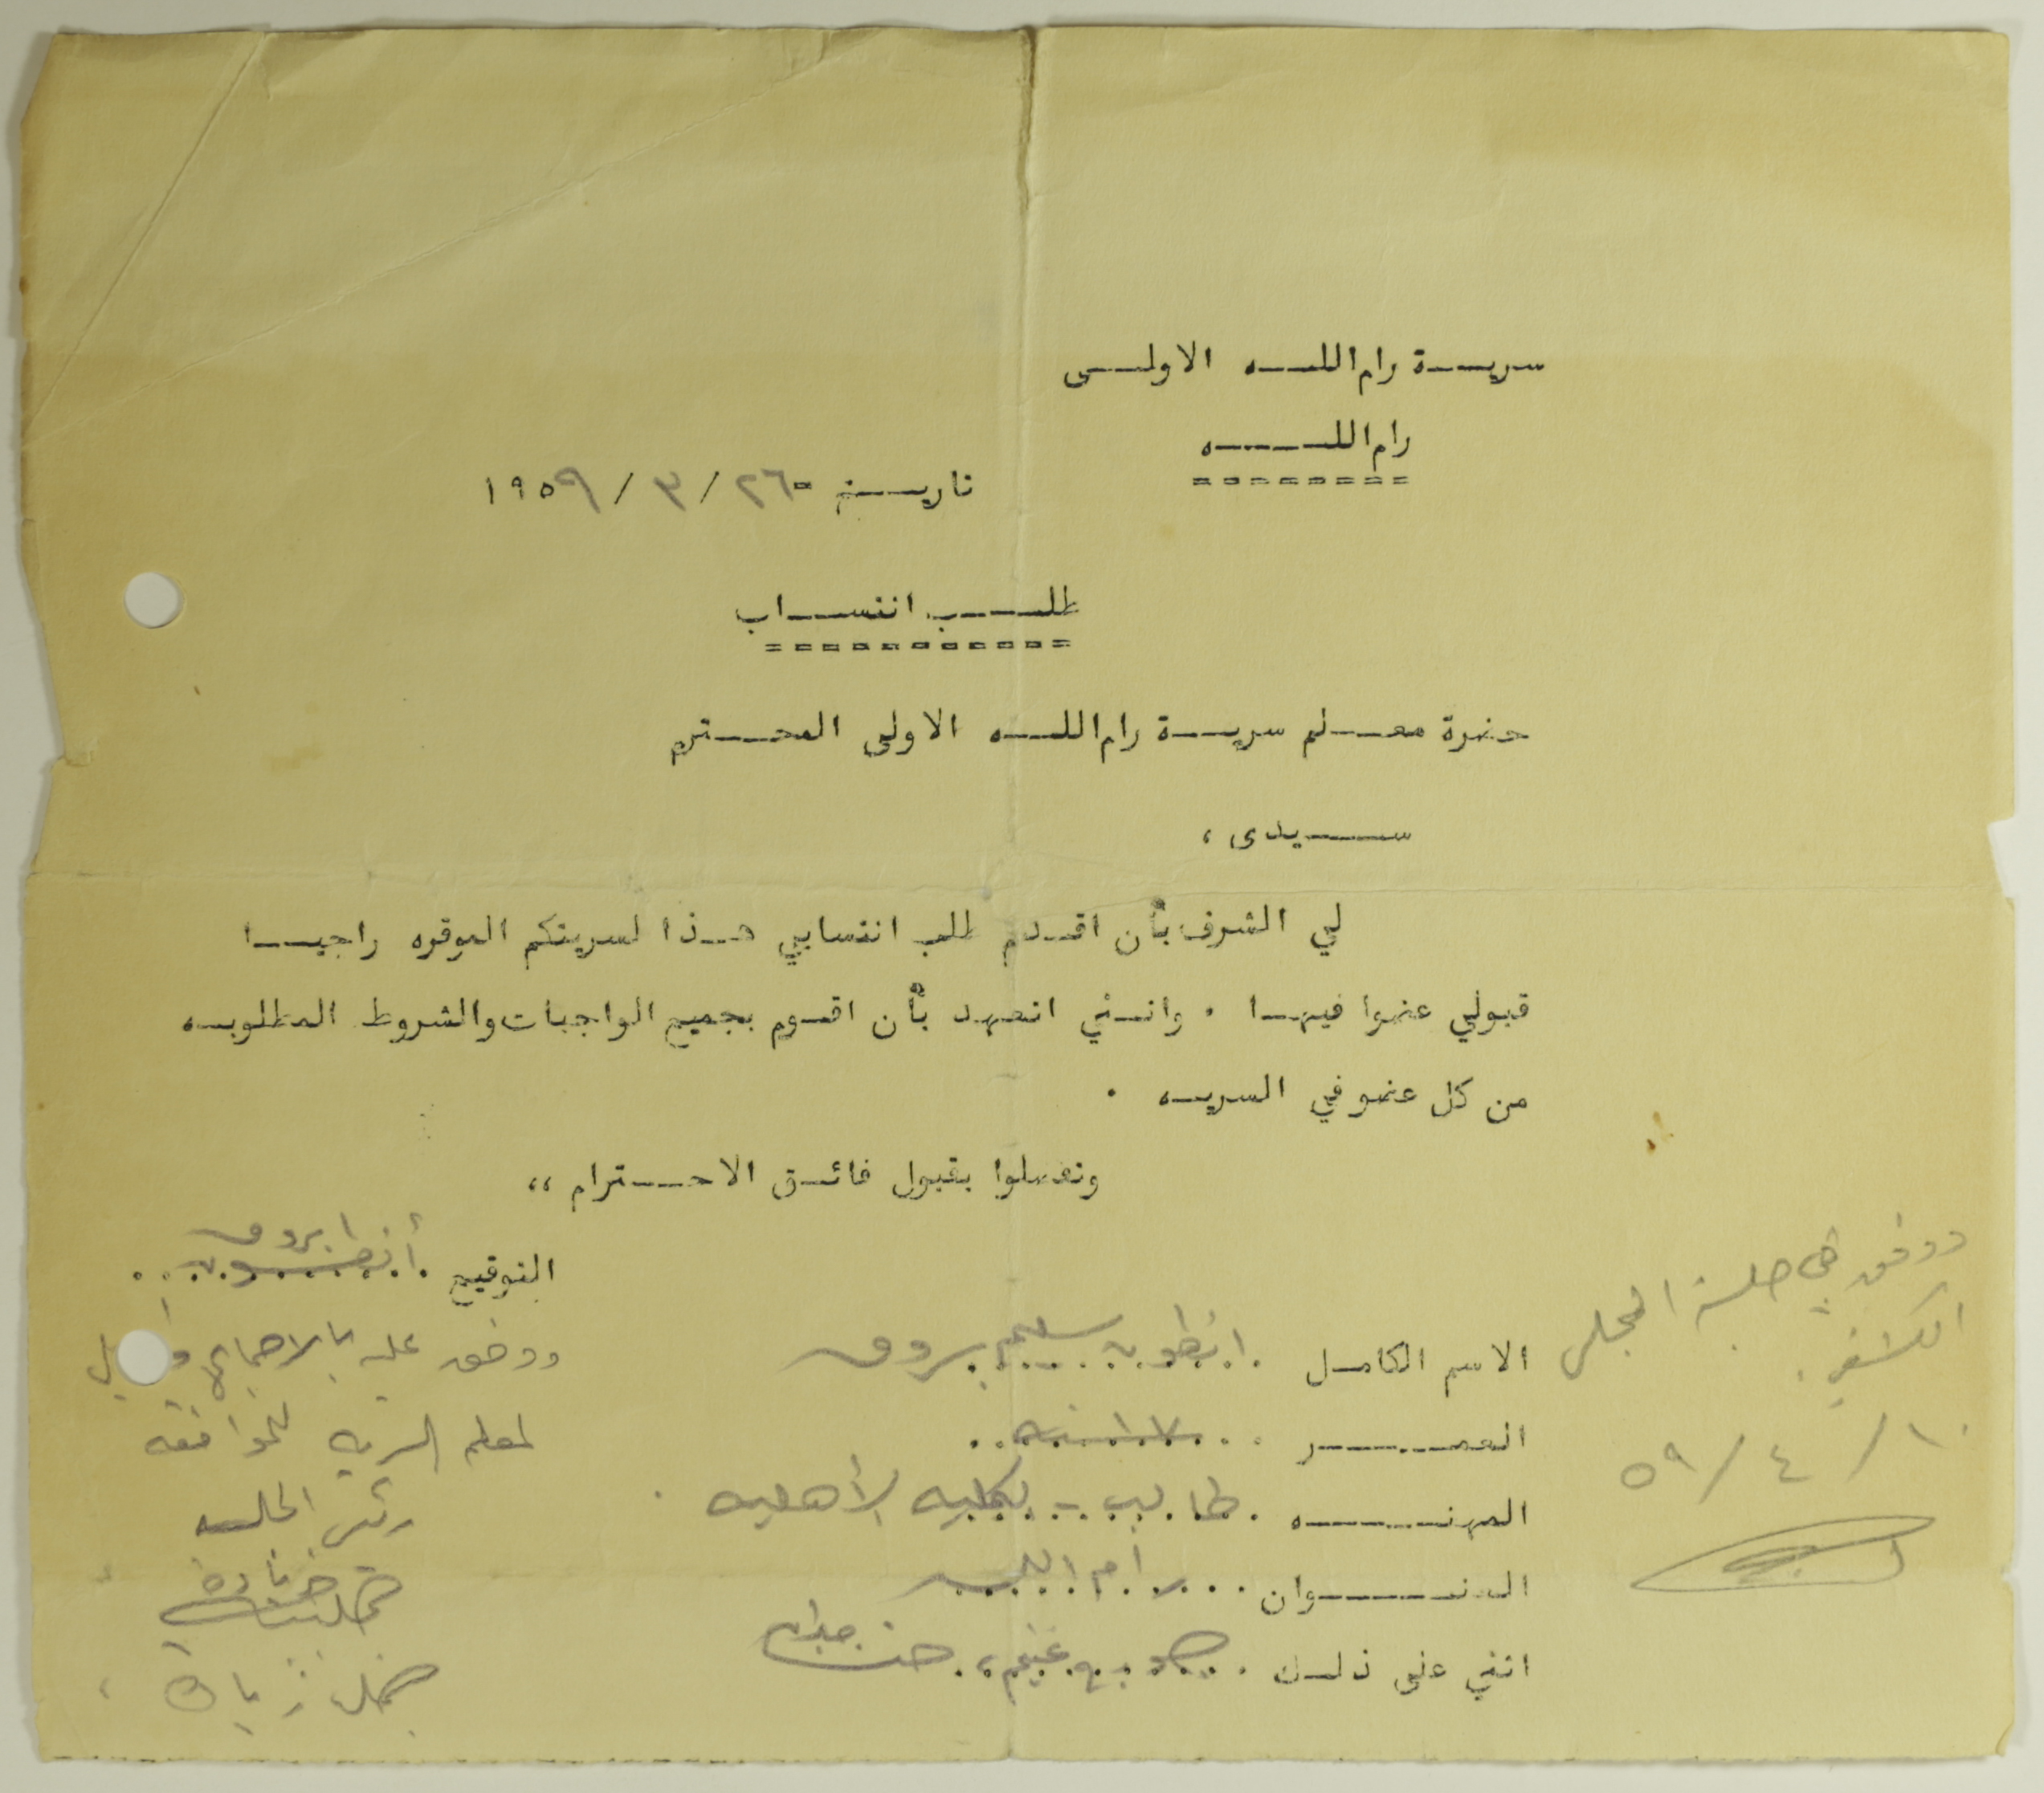 سرية رام الله الاولى
رام الله
تاريخ ٢٦ / ٣ / ١٩٥٩
طلب انتساب
حضرة معلم سرية رام الله الاولى المحترم
سيدى ،
لي الشرف بأن اقدم طلب انتسابي هذا لسريتكم الموقره راجيا
قبولي عضوا فيها . وانني اتعهد بأن اقوم بجميع الواجبات والشروط المطلوبه
من كل عضو في السريه .
وتفضلوا بقبول فائق الاحترام ،،
التوقيع أنطون
الاسم الكامل انطون سليم
العمر سنه
المهنه طالب - بكليه الأهليه
العنوان رام الله
اثني على ذلك غنيم ، حنا
ووفق عليه بالاجماع
لمعلم السريه للموافقه
رئيس الجلسه
زياده
ووفق في جلسة المجلس
الكشفي .
١٠ / ٤ / ٥٩